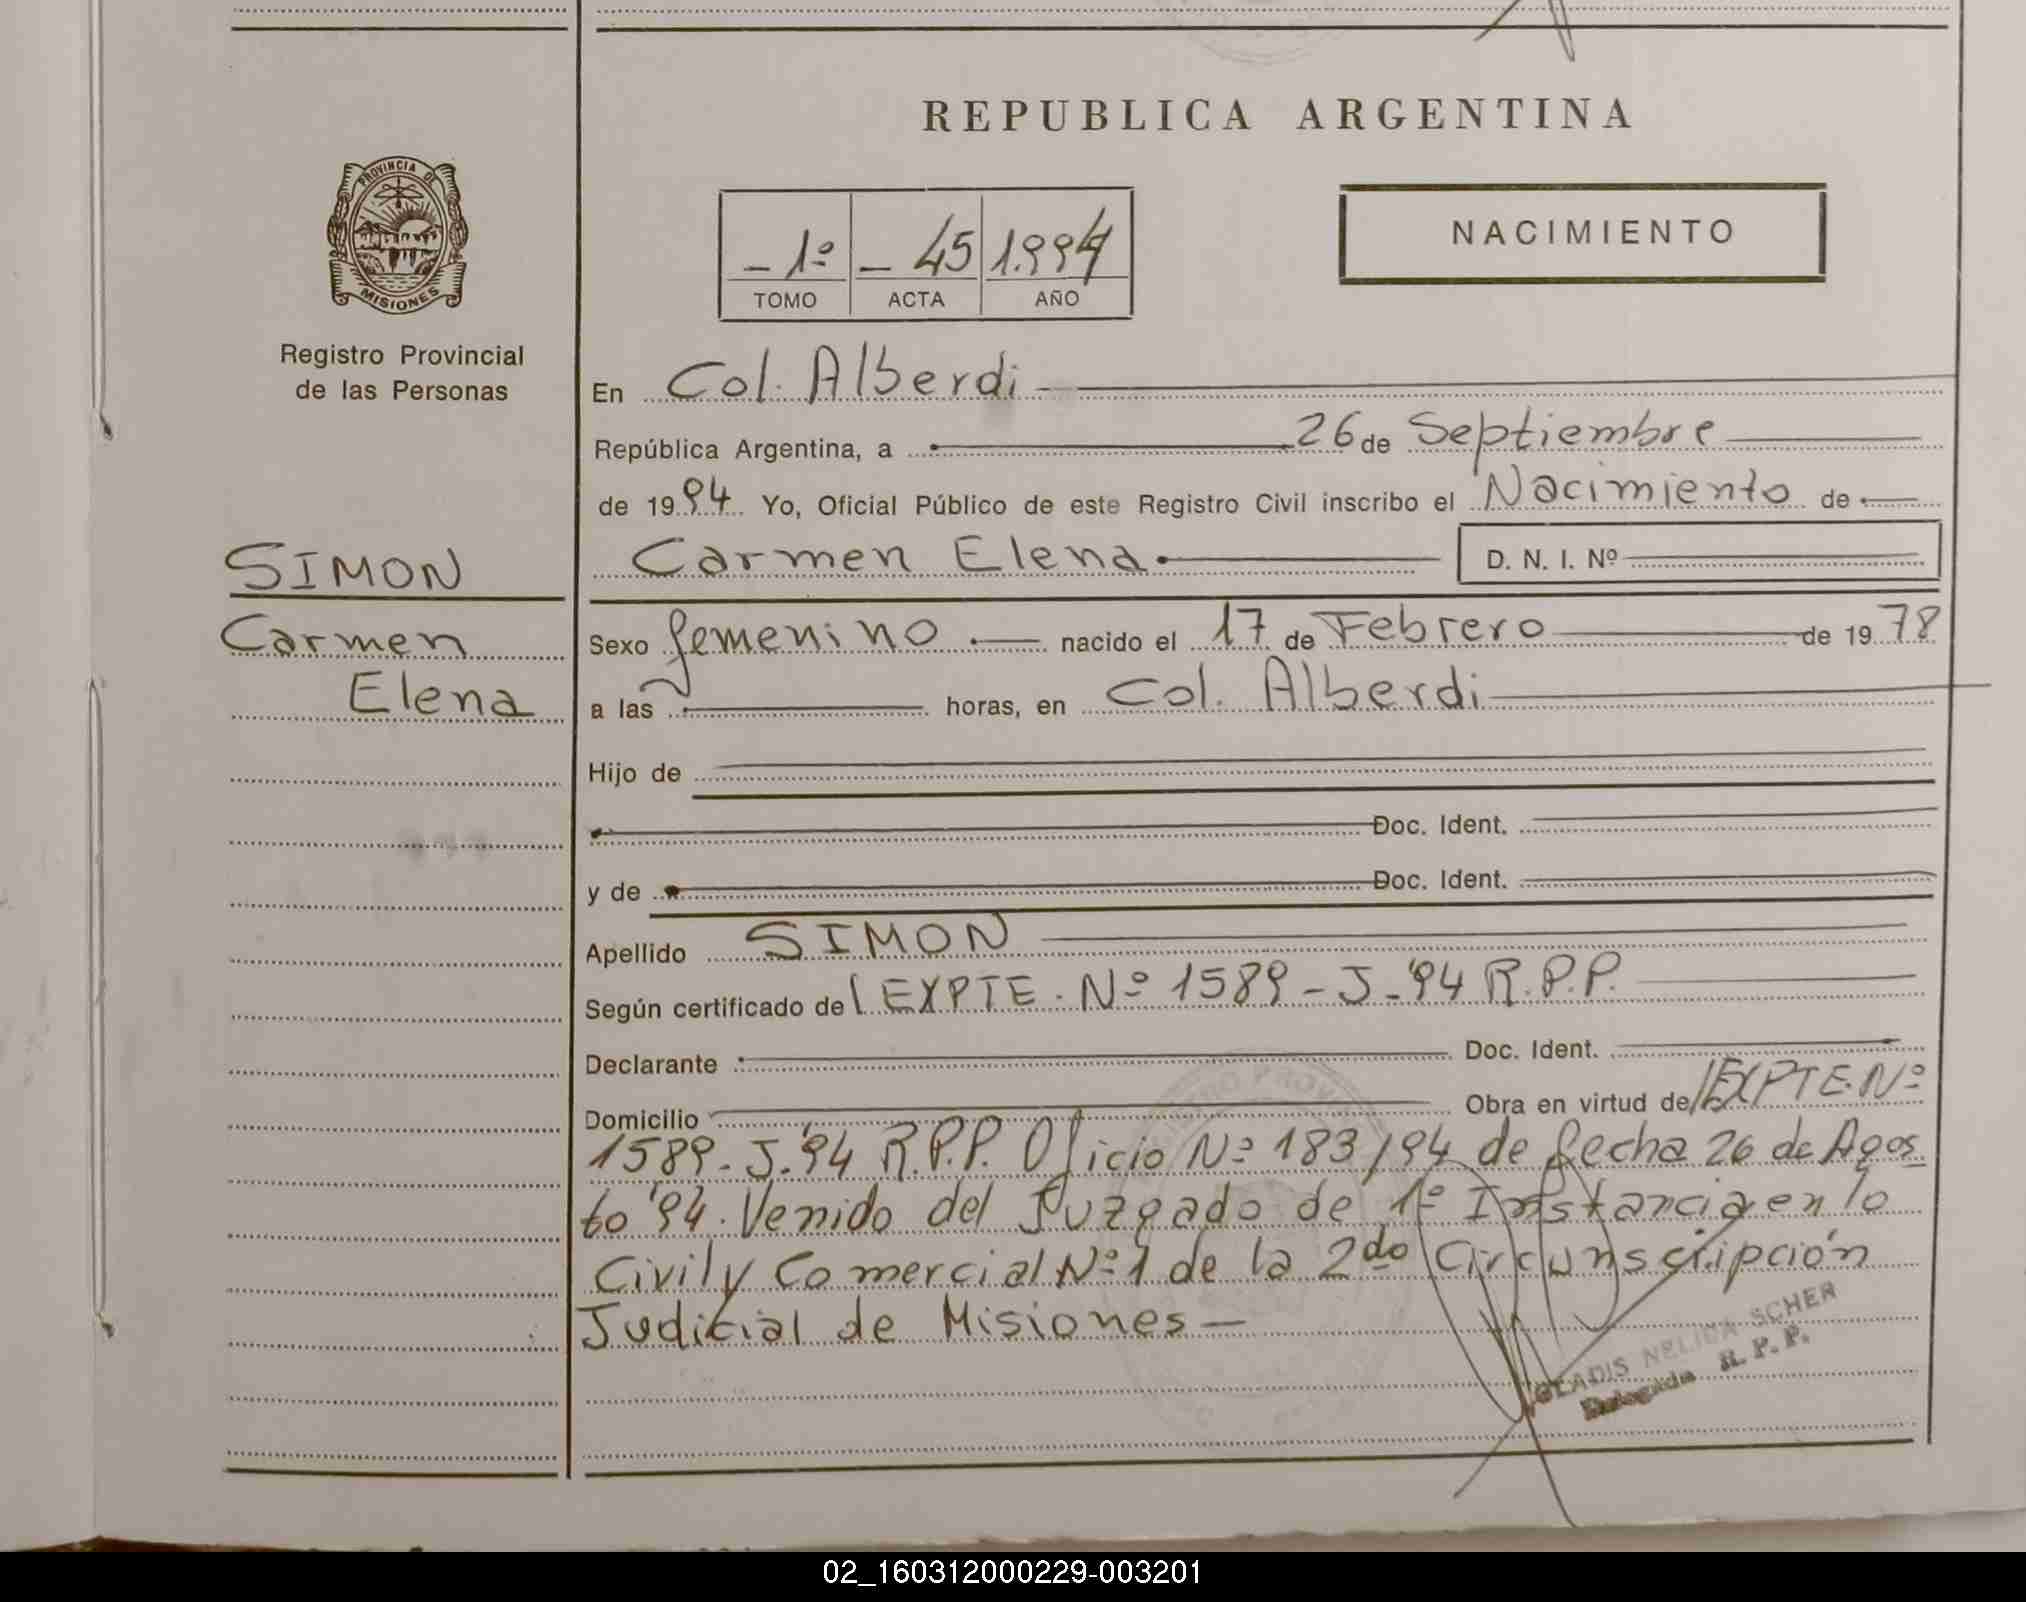 REPUBLICA ARGENTINA
PROVINCIA DE
MISIONES
Registro Provincial
de las Personas
NACIMIENTO
- 1º - 45 1.994
TOMO ACTA AÑO
En Col. Alberdi
República Argentina, a 26 de Septiembre
de 1994 Yo, Oficial Público de este Registro Civil inscribo el Nacimiento de
SIMON
Carmen
Elena
Carmen Elena D. N. I. Nº
Sexo femenino nacido el 17 de Febrero de 1978
a las horas, en Col. Alberdi
Hijo de
Doc. Ident.
y de Doc. Ident.
Apellido SIMON
Según certificado del EXPTE. Nº 1589-J-'94 R.P.P.
Declarante Doc. Ident.
Domicilio Obra en virtud del EXPTE. Nº
1589-J-'94 R.P.P. Oficio Nº 183/94 de fecha 26 de Agos
to '94. Venido del Juzgado de 1º Instancia en lo
Civil y Comercial Nº 1 de la 2do Circunscripción
Judicial de Misiones -
GLADIS NELIDA SCHER
Delegada R. P. P.
02_160312000229-003201